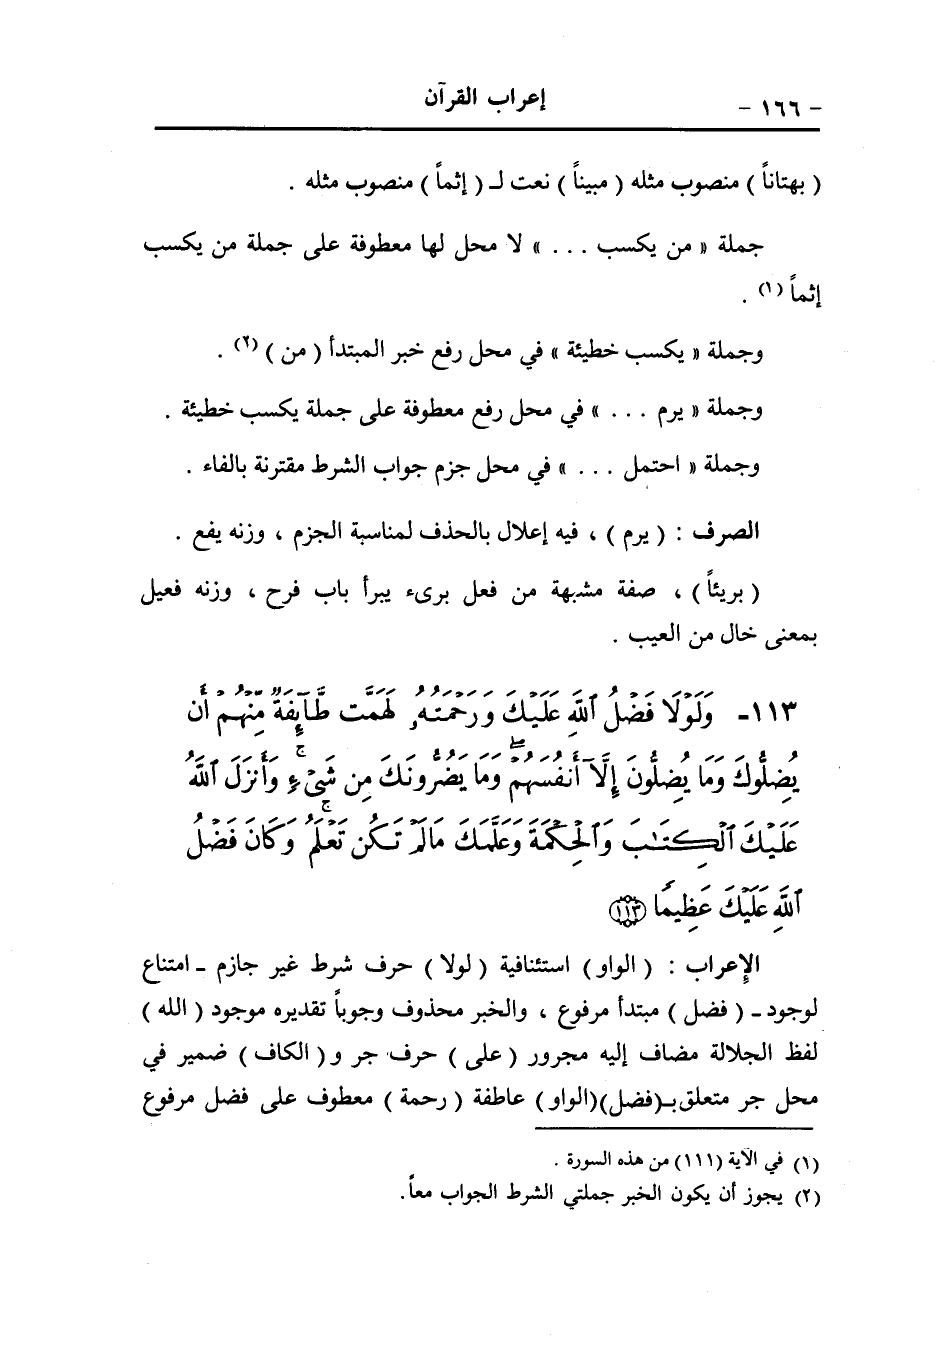 إعراب القرآن
- ١٦٦ -
( بهتاناً ) منصوب مثله ( مبيناً ) نعت لـ ( إثماً ) منصوب مثله .
جملة « من يكسب . . . » لا محل لها معطوفة على جملة من يكسب
إثماً (١) .
وجملة « يكسب خطيئة » في محل رفع خبر المبتدأ ( من ) (٢) .
وجملة « يرم . . . » في محل رفع معطوفة على جملة يكسب خطيئة .
وجملة « احتمل . . . » في محل جزم جواب الشرط مقترنة بالفاء .
الصرف : ( يرم ) ، فيه إعلال بالحذف لمناسبة الجزم ، وزنه يفع .
( بريئاً ) ، صفة مشبهة من فعل برىء يبرأ باب فرح ، وزنه فعيل
بمعنى خال من العيب .
١١٣- وَلَوْلَا فَضْلُ ٱللَّهِ عَلَيْكَ وَرَحْمَتُهُۥ لَهَمَّت طَّآئِفَةٌ مِّنْهُمْ أَن
يُضِلُّوكَ وَمَا يُضِلُّونَ إِلَّآ أَنفُسَهُمْ ۖ وَمَا يَضُرُّونَكَ مِن شَىْءٍ ۚ وَأَنزَلَ ٱللَّهُ
عَلَيْكَ ٱلْكِتَـٰبَ وَٱلْحِكْمَةَ وَعَلَّمَكَ مَا لَمْ تَكُن تَعْلَمُ ۚ وَكَانَ فَضْلُ
ٱللَّهِ عَلَيْكَ عَظِيمًا ١١٣
الإعراب : ( الواو ) استئنافية ( لولا ) حرف شرط غير جازم ـ امتناع
لوجود ـ ( فضل ) مبتدأ مرفوع ، والخبر محذوف وجوباً تقديره موجود ( الله )
لفظ الجلالة مضاف إليه مجرور ( على ) حرف جر و( الكاف ) ضمير في
محل جر متعلق بـ(فضل)(الواو) عاطفة ( رحمة ) معطوف على فضل مرفوع
(١) في الآية (١١١) من هذه السورة .
(٢) يجوز أن يكون الخبر جملتي الشرط الجواب معاً.